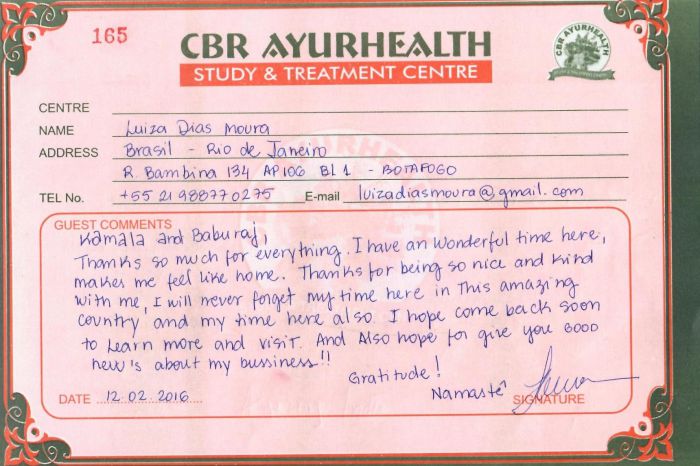 165
CBR AYURHEALTH
STUDY & TREATMENT CENTRE
CBR AYURHEALTH
STUDY & TREATMENT CENTRE
CENTRE
NAME Luiza Dias Moura
ADDRESS Brasil - Rio de Janeiro
R. Bambina 134 AP 106 BL 1 - BOTAFOGO
TEL No. +55 21 988770275 E-mail luizadiasmoura@gmail.com
GUEST COMMENTS
Kamala and Baburaj,
Thanks so much for everything. I have an wonderful time here,
makes me feel like home. Thanks for being so nice and kind
with me, I will never forget my time here in this amazing
country, and my time here also. I hope come back soon
to learn more and visit. And Also hope for give you good
new's about my bussiness!!
Gratitude!
Namastê
DATE 12.02.2016 SIGNATURE